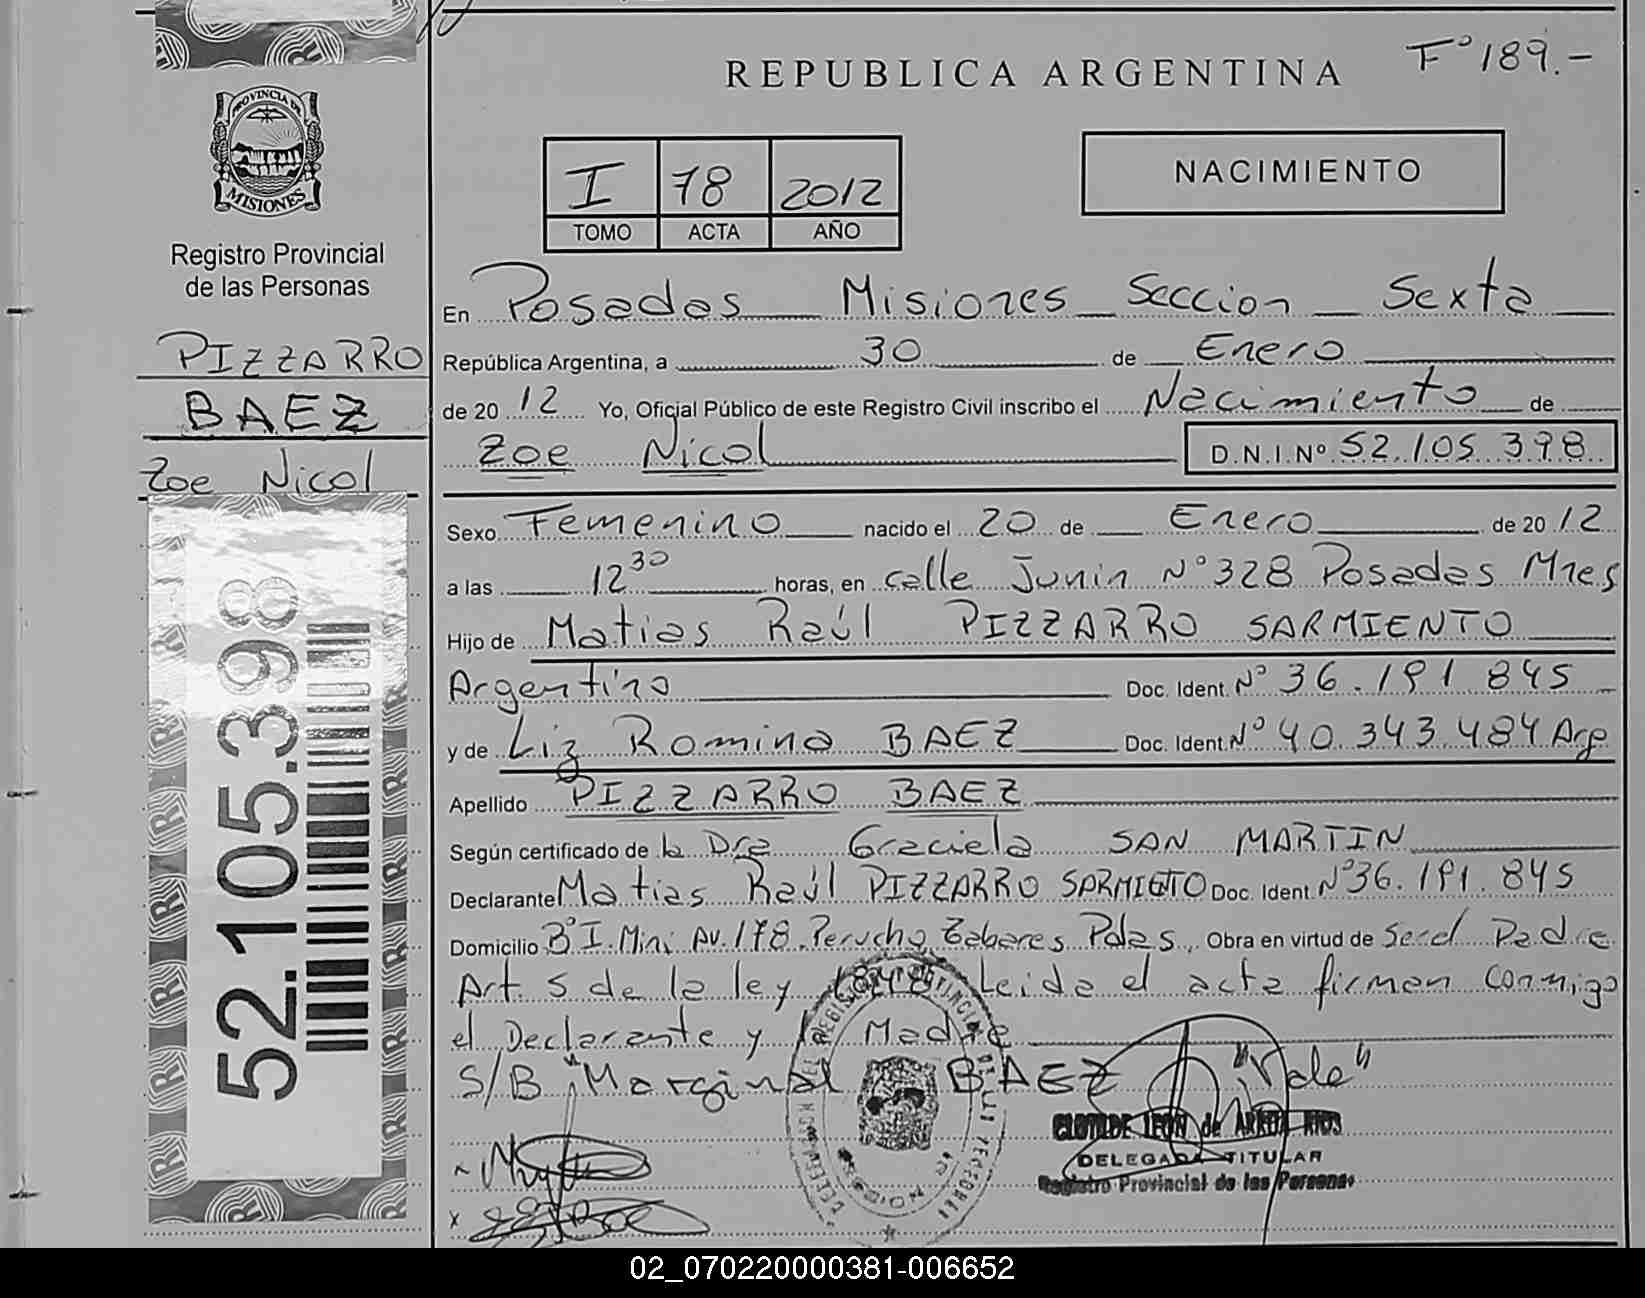 F° 189.-
REPUBLICA ARGENTINA
PROVINCIA DE
MISIONES
Registro Provincial
de las Personas
I 78 2012
TOMO ACTA AÑO
NACIMIENTO
PIZZARRO
BAEZ
Zoe Nicol
52.105.398
En Posadas Misiones Seccion Sexta
República Argentina, a 30 de Enero
de 20 12 Yo, Oficial Público de este Registro Civil inscribo el Nacimiento de
Zoe Nicol D.N.I.Nº 52.105.398
Sexo Femenino nacido el 20 de Enero de 20 12
a las 12 30 horas, en calle Junin N° 328 Posadas Mnes
Hijo de Matias Raúl PIZZARRO SARMIENTO
Argentino Doc. Ident. N° 36.191 845
y de Liz Romina BAEZ Doc. Ident. N° 40.343.484 Arg
Apellido PIZZARRO BAEZ
Según certificado de la Dra Graciela SAN MARTIN
Declarante Matias Raúl PIZZARRO SARMIENTO Doc. Ident. N° 36.191.845
Domicilio B° I. Mini AV. 178 Perucho Tabares Pdas., Obra en virtud de Ser el Padre
Art. 5 de la ley Leida el acta firman conmigo
el Declarante y Madre
S/B "Marginal BAEZ "Vale"
CLOTILDE LEON de
DELEGADA TITULAR
Registro Provincial de las Personas
x
02_070220000381-006652